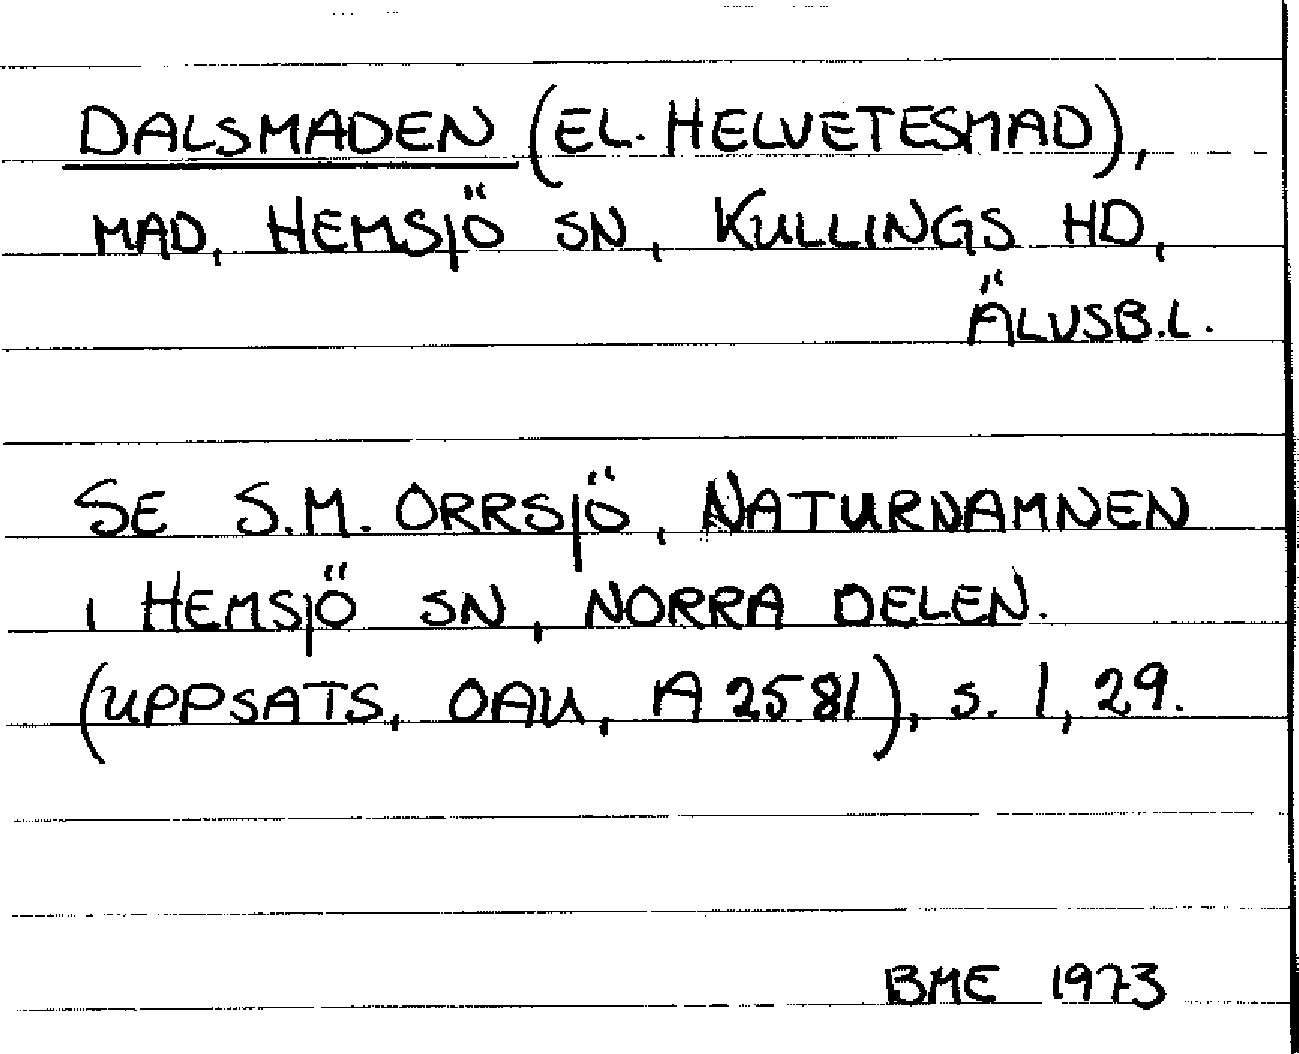 DALSMADEN (EL. HELVETESMAD),
MAD, HEMSJÖ SN, KULLINGS HD,
ÄLVSB.L.
SE S.M. ORRSJÖ, NATURNAMNEN
I HEMSJÖ SN, NORRA DELEN.
(UPPSATS, OAU, A 2581), s. 1, 29.
BME 1973